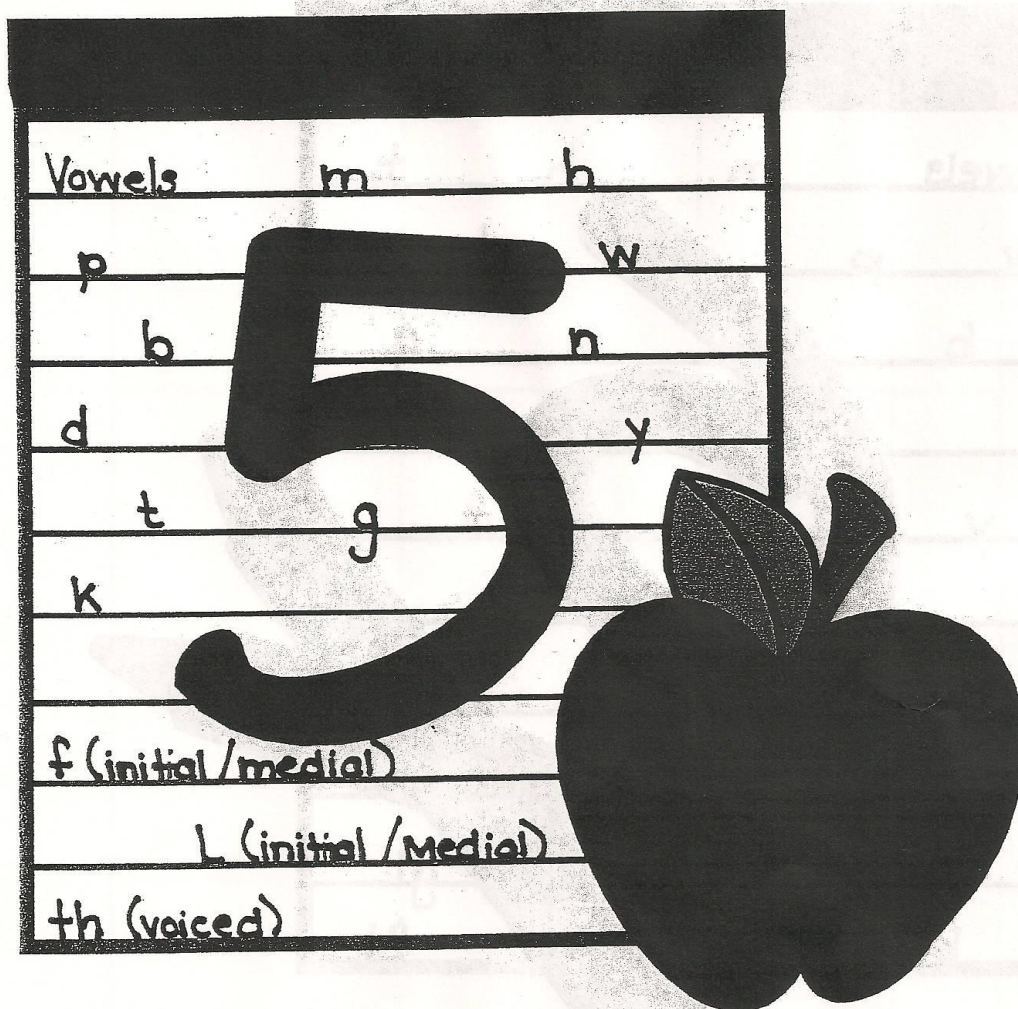 Vowels m h
p w
b n
d y
t g
k
5
f (initial/medial)
L (initial/Medial)
th (voiced)